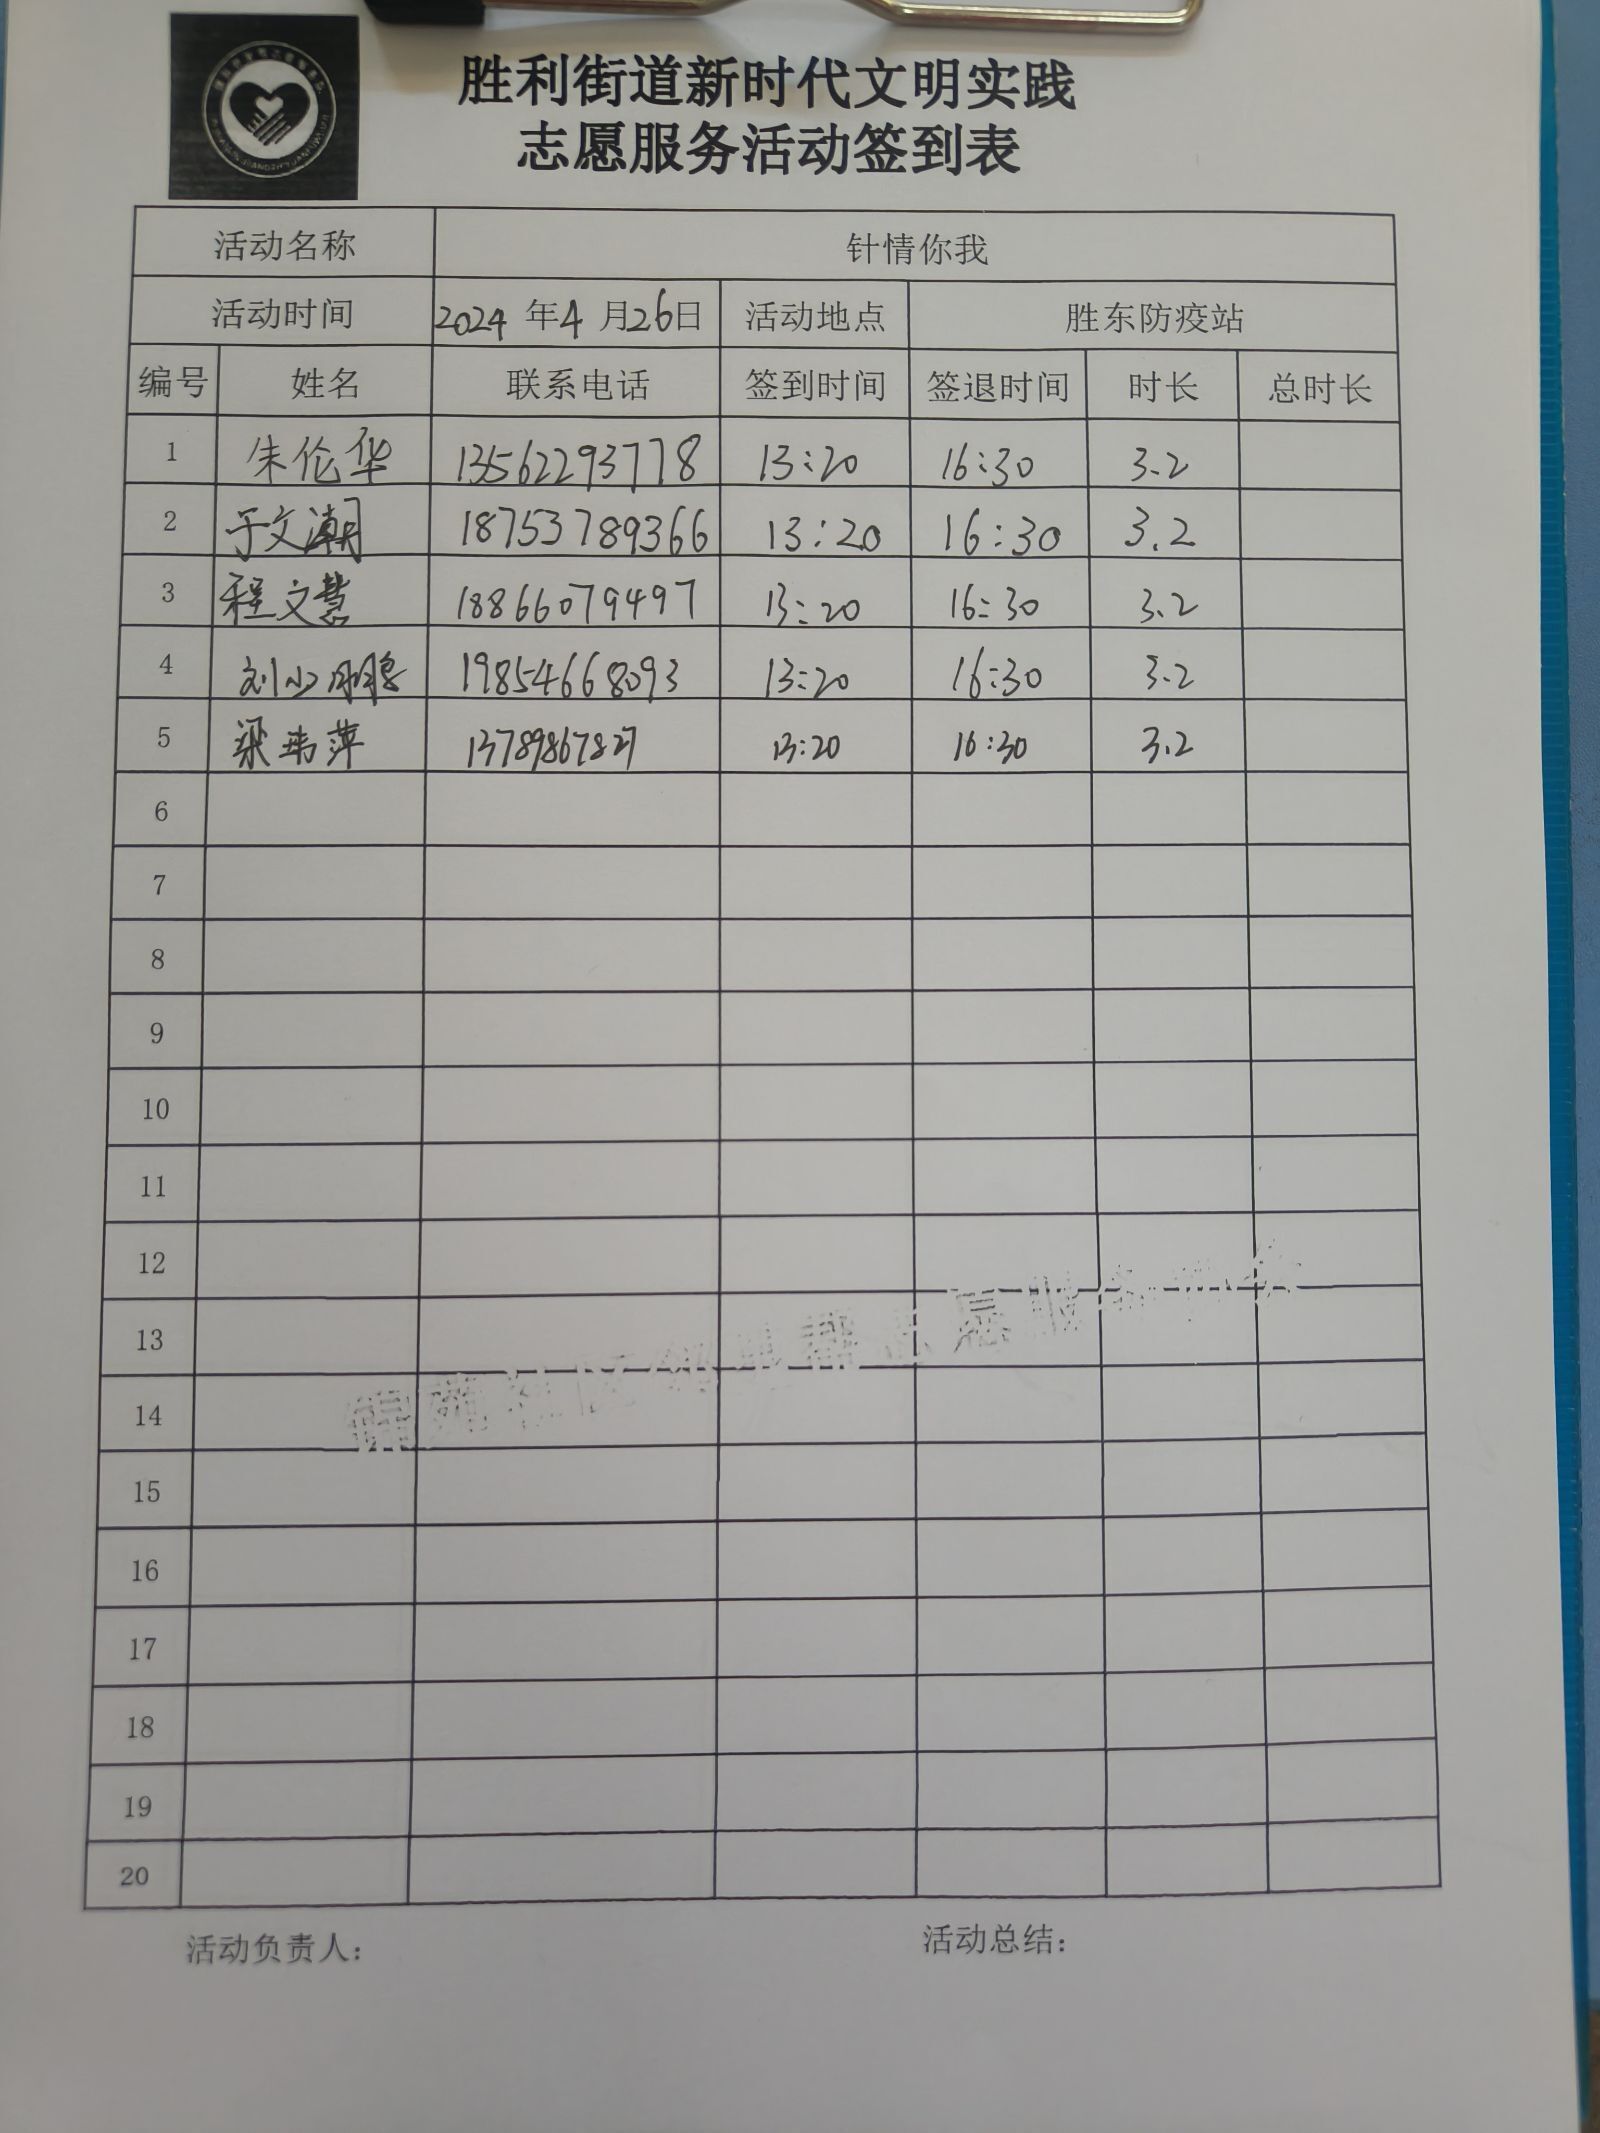 胜利街道新时代文明实践
志愿服务活动签到表
活动名称 针情你我
活动时间 2024 年 4 月 26 日 活动地点 胜东防疫站
编号 姓名 联系电话 签到时间 签退时间 时长 总时长
1 朱伦华 13562293778 13:20 16:30 3.2
2 于文潮 18753789366 13:20 16:30 3.2
3 程文慧 18866079497 13:20 16:30 3.2
4 刘少鹏 19854668093 13:20 16:30 3.2
5 梁玮萍 13789867827 13:20 16:30 3.2
6
7
8
9
10
11
12
13
14
15
16
17
18
19
20
活动负责人： 活动总结：